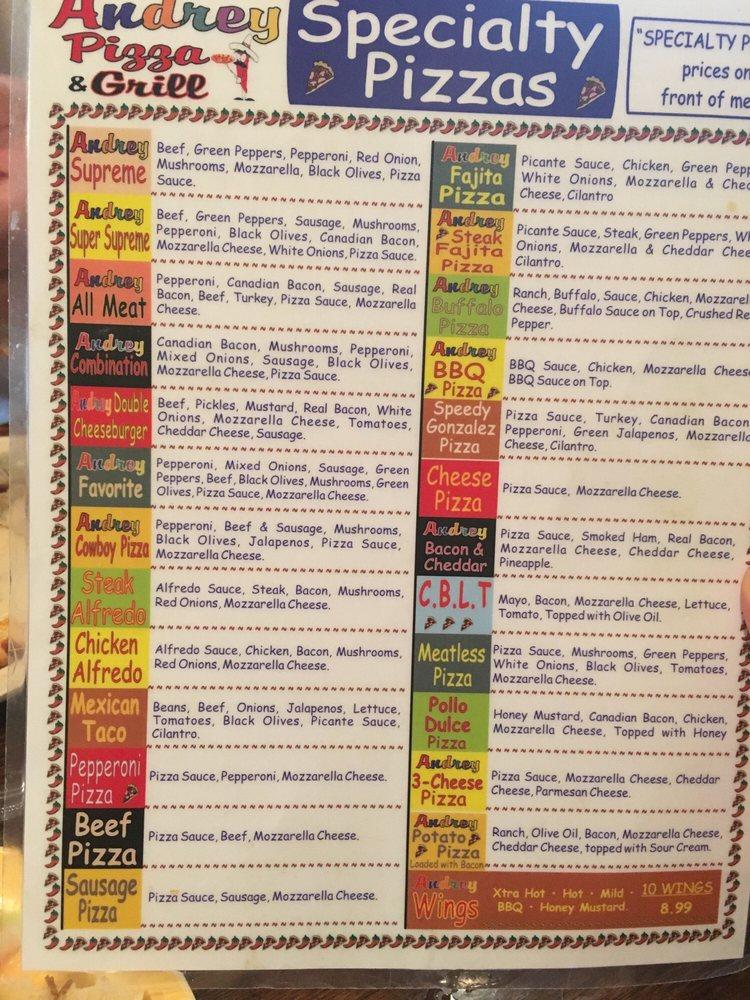 Andrey
Pizza
& Grill
Specialty
Pizzas
"SPECIALTY
prices on
front of
Andrey
Supreme
Beef, Green Peppers, Pepperoni, Red Onion,
Mushrooms, Mozzarella, Black Olives, Pizza
Sauce.
Andrey
Super Supreme
Beef, Green Peppers, Sausage, Mushrooms,
Pepperoni, Black Olives, Canadian Bacon,
Mozzarella Cheese, White Onions, Pizza Sauce.
Andrey
All Meat
Pepperoni, Canadian Bacon, Sausage, Real
Bacon, Beef, Turkey, Pizza Sauce, Mozzarella
Cheese.
Andrey
Combination
Canadian Bacon, Mushrooms, Pepperoni,
Mixed Onions, Sausage, Black Olives,
Mozzarella Cheese, Pizza Sauce.
Andrey Double
Cheeseburger
Beef, Pickles, Mustard, Real Bacon, White
Onions, Mozzarella Cheese, Tomatoes,
Cheddar Cheese, Sausage.
Andrey
Favorite
Pepperoni, Mixed Onions, Sausage, Green
Peppers, Beef, Black Olives, Mushrooms, Green
Olives, Pizza Sauce, Mozzarella Cheese.
Andrey
Cowboy Pizza
Pepperoni, Beef & Sausage, Mushrooms,
Black Olives, Jalapenos, Pizza Sauce,
Mozzarella Cheese.
Steak
Alfredo
Alfredo Sauce, Steak, Bacon, Mushrooms,
Red Onions, Mozzarella Cheese.
Chicken
Alfredo
Alfredo Sauce, Chicken, Bacon, Mushrooms,
Red Onions, Mozzarella Cheese.
Mexican
Taco
Beans, Beef, Onions, Jalapenos, Lettuce,
Tomatoes, Black Olives, Picante Sauce,
Cilantro.
Pepperoni
Pizza
Pizza Sauce, Pepperoni, Mozzarella Cheese.
Beef
Pizza
Pizza Sauce, Beef, Mozzarella Cheese.
Sausage
Pizza
Pizza Sauce, Sausage, Mozzarella Cheese.
Andrey
Fajita
Pizza
Picante Sauce, Chicken, Green
White Onions, Mozzarella &
Cheese, Cilantro
Andrey
Steak
Fajita
Pizza
Picante Sauce, Steak, Green Peppers,
Onions, Mozzarella & Cheddar
Cilantro.
Andrey
Buffalo
Pizza
Ranch, Buffalo, Sauce, Chicken,
Cheese, Buffalo Sauce on Top, Crushed
Pepper.
Andrey
BBQ
Pizza
BBQ Sauce, Chicken, Mozzarella Cheese
BBQ Sauce on Top.
Speedy
Gonzalez
Pizza
Pizza Sauce, Turkey, Canadian Bacon
Pepperoni, Green Jalapenos, Mozzarella
Cheese, Cilantro.
Cheese
Pizza
Pizza Sauce, Mozzarella Cheese.
Andrey
Bacon &
Cheddar
Pizza Sauce, Smoked Ham, Real Bacon,
Mozzarella Cheese, Cheddar Cheese,
Pineapple.
C.B.L.T
Mayo, Bacon, Mozzarella Cheese, Lettuce,
Tomato, Topped with Olive Oil.
Meatless
Pizza
Pizza Sauce, Mushrooms, Green Peppers,
White Onions, Black Olives, Tomatoes,
Mozzarella Cheese.
Pollo
Dulce
Pizza
Honey Mustard, Canadian Bacon, Chicken,
Mozzarella Cheese, Topped with Honey
Andrey
3-Cheese
Pizza
Pizza Sauce, Mozzarella Cheese, Cheddar
Cheese, Parmesan Cheese.
Andrey
Potato
Pizza
Loaded with Bacon
Ranch, Olive Oil, Bacon, Mozzarella Cheese,
Cheddar Cheese, topped with Sour Cream.
Andrey
Wings
Xtra Hot · Hot · Mild · 10 WINGS
BBQ · Honey Mustard. 8.99